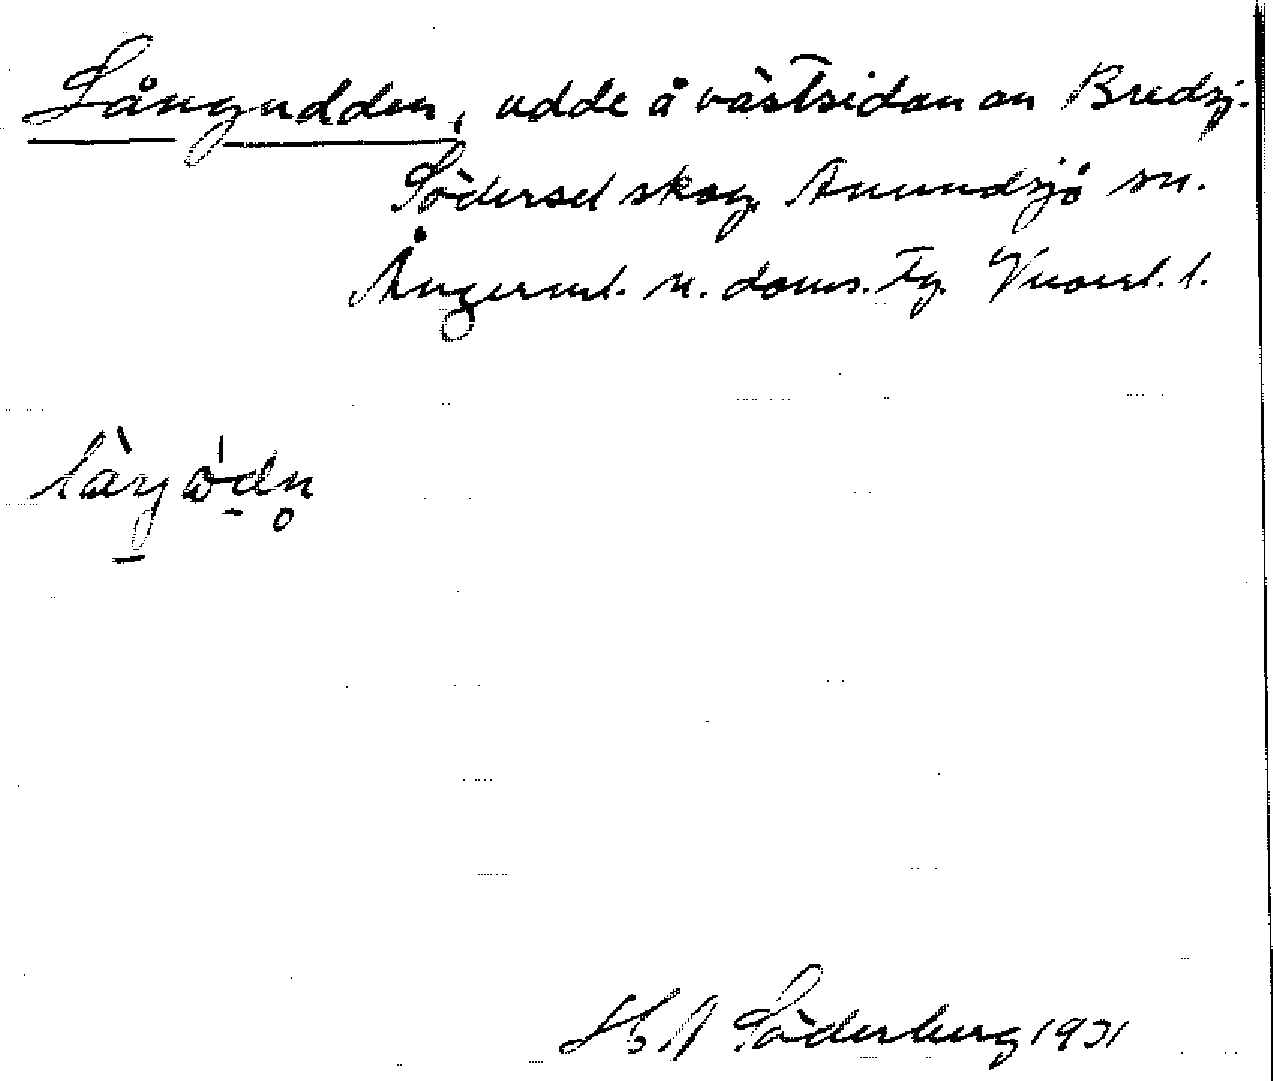 Långudden, udde å västsidan av Bredsj.
Södersel skog Anundsjö sn.
Ångerml. n. doms. tg. Vnorrl. l.
Söderberg 1931